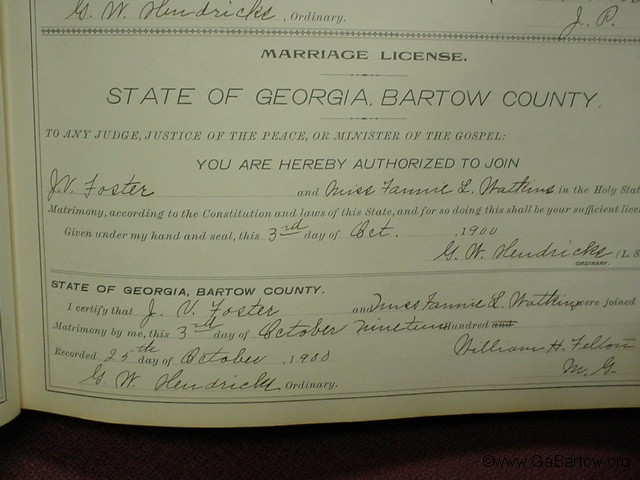 G. W. Hendricks, Ordinary.
J. P.
MARRIAGE LICENSE.
STATE OF GEORGIA, BARTOW COUNTY.
TO ANY JUDGE, JUSTICE OF THE PEACE, OR MINISTER OF THE GOSPEL:
YOU ARE HEREBY AUTHORIZED TO JOIN
J. V. Foster and Miss Fannie L. Watkins in the Holy Stat
Matrimony, according to the Constitution and laws of this State, and for so doing this shall be your sufficient lice
Given under my hand and seal, this 3rd day of Oct. , 1900
G. W. Hendricks (L. S
ORDINARY.
STATE OF GEORGIA, BARTOW COUNTY.
I certify that J. V. Foster and Miss Fannie L. Watkins were joined
Matrimony by me, this 3rd day of October nineteen hundred and
William H.
Recorded 25th day of October , 1900
M. G.
G. W. Hendricks Ordinary.
©www.GaBartow.org